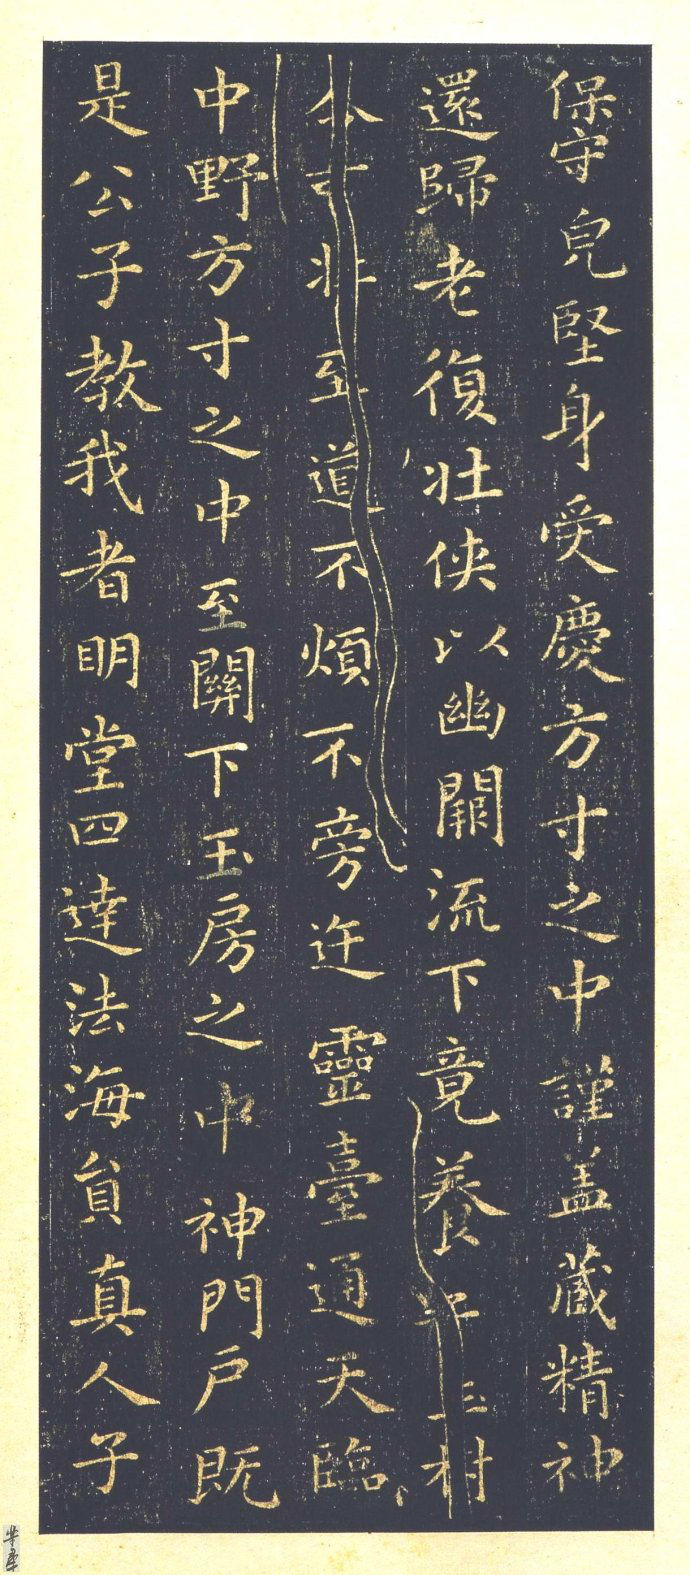 保守皃堅身受慶方寸之中謹盖藏精神
還歸老復壯俠以幽闕流下竟養子玉树
不可杖至道不煩不旁迕靈臺通天臨
中野方寸之中至關下玉房之中神門户既
是公子教我者明堂四達法海負真人子